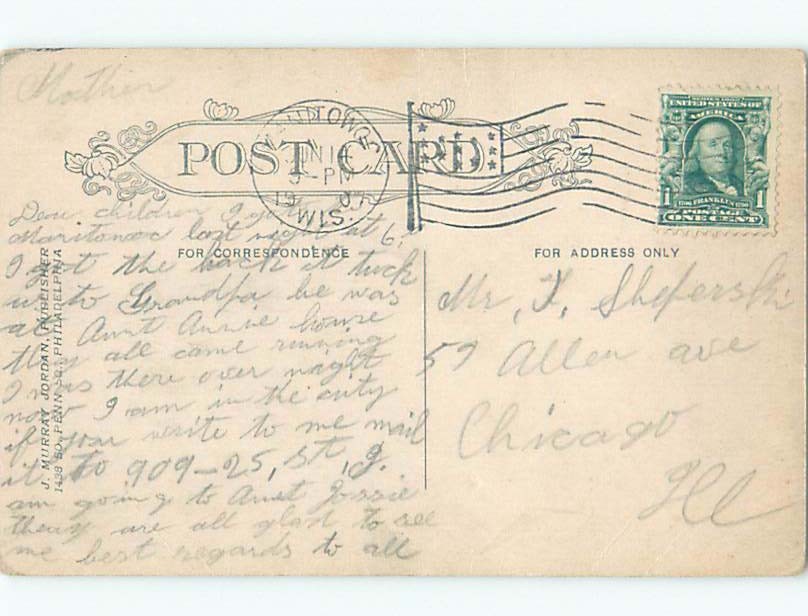 Mother
POST CARD
JUN 1
PM
WIS.
SERIES 1902
UNITED STATES OF
AMERICA
1 1706 FRANKLIN 1790 1
POSTAGE
ONE CENT
FOR CORRESPONDENCE
FOR ADDRESS ONLY
J. MURRAY JORDAN, PUBLISHER
1438 SO. PENN SQ., PHILADELPHIA
Dear children I got
last night at 6.
I got the hack it tuck
us to Grandpa he was
at Aunt Annie house
they all came running
I was there over night
now I am in the city
if you write to me mail
it to 909-25, St, I.
am going to Aunt Jossie
they are all glad to see
me best regards to all
Mr,
59 Allen ave
Chicago
Ill